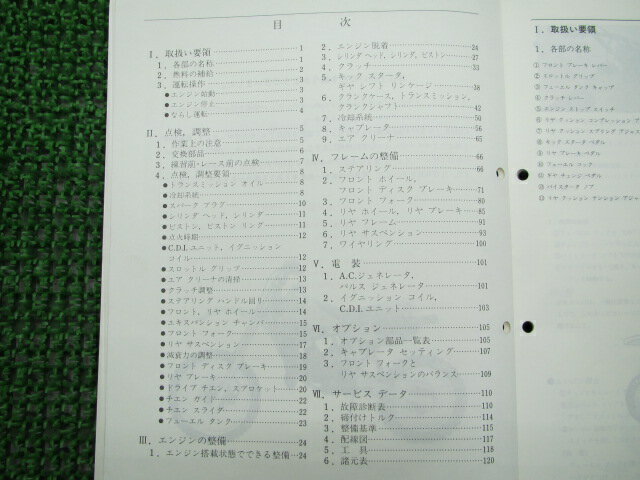 目 次
Ⅰ．取扱い要領 1
1．各部の名称 1
2．燃料の補給 2
3．運転操作 3
●エンジン始動 3
●エンジン停止 4
●ならし運転 4
Ⅱ．点検，調整 5
1．作業上の注意 5
2．交換部品 6
3．練習前・レース前の点検 7
4．点検，調整要領 8
●トランスミッション オイル 8
●冷却系統 8
●スパーク プラグ 10
●シリンダ ヘッド，シリンダ 11
●ピストン，ピストン リング 11
●点火時期 12
●C.D.I.ユニット，イグニッション
コイル 12
●スロットル グリップ 12
●エア クリーナの清掃 13
●クラッチ調整 13
●ステアリング ハンドル回り 14
●フロント，リヤ ホイール 14
●エキスパンション チャンバ 15
●フロント フォーク 15
●リヤ サスペンション 17
●減衰力の調整 18
●フロント ディスク ブレーキ 19
●リヤ ブレーキ 20
●ドライブ チエン，スプロケット 20
●チエン ガイド 22
●チエン スライダ 22
●フューエル タンク 23
Ⅲ．エンジンの整備 24
1．エンジン搭載状態でできる整備 24
2．エンジン脱着 24
3．シリンダ ヘッド，シリンダ，ピストン 27
4．クラッチ 33
5．キック スタータ，
ギヤ シフト リンケージ 38
6．クランクケース，トランスミッション，
クランクシャフト 42
7．冷却系統 50
8．キャブレータ 56
9．エア クリーナ 65
Ⅳ．フレームの整備 66
1．ステアリング 66
2．フロント ホイール，
フロント ディスク ブレーキ 71
3．フロント フォーク 80
4．リヤ ホイール，リヤ ブレーキ 85
5．リヤ フレーム 91
6．リヤ サスペンション 93
7．ワイヤリング 100
Ⅴ．電 装 101
1．A.C.ジェネレータ，
パルス ジェネレータ 101
2．イグニッション コイル，
C.D.I.ユニット 103
Ⅵ．オプション 105
1．オプション部品一覧表 105
2．キャブレータ セッティング 107
3．フロント フォークと
リヤ サスペンションのバランス 109
Ⅶ．サービス データ 110
1．故障診断表 110
2．締付けトルク 114
3．整備基準 115
4．配線図 117
5．工 具 118
6．諸元表 120
Ⅰ．取扱い要領
1．各部の名称
①フロント ブレーキ レバー
②スロットル グリップ
③フューエル タンク キャップ
④クラッチ レバー
⑤エンジン ストップ スイッチ
⑥リヤ クッション コンプレッション ア
⑦リヤ クッション スプリング アジャ
⑧キック スタータ ペダル
⑨リヤ ブレーキ ペダル
⑩フューエル コック
⑪ギヤ チェンジ ペダル
⑫バイスタータ ノブ
⑬リヤ クッション テンション アジャ